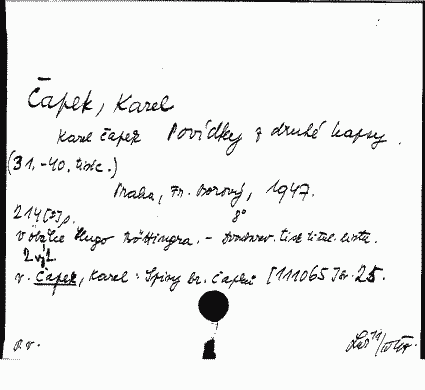 Čapek, Karel
Karel Čapek Povídky z druhé kapsy.
(31.-40. tisíc.)
Praha, Fr. Borový, 1947.
214 [2] s. 8°
V obálce Hugo Böttingra. - Dvoubarev. tisk titul. listu.
2 výt.
v. Čapek, Karel: Spisy br. Čapků [111065] sv. 25.